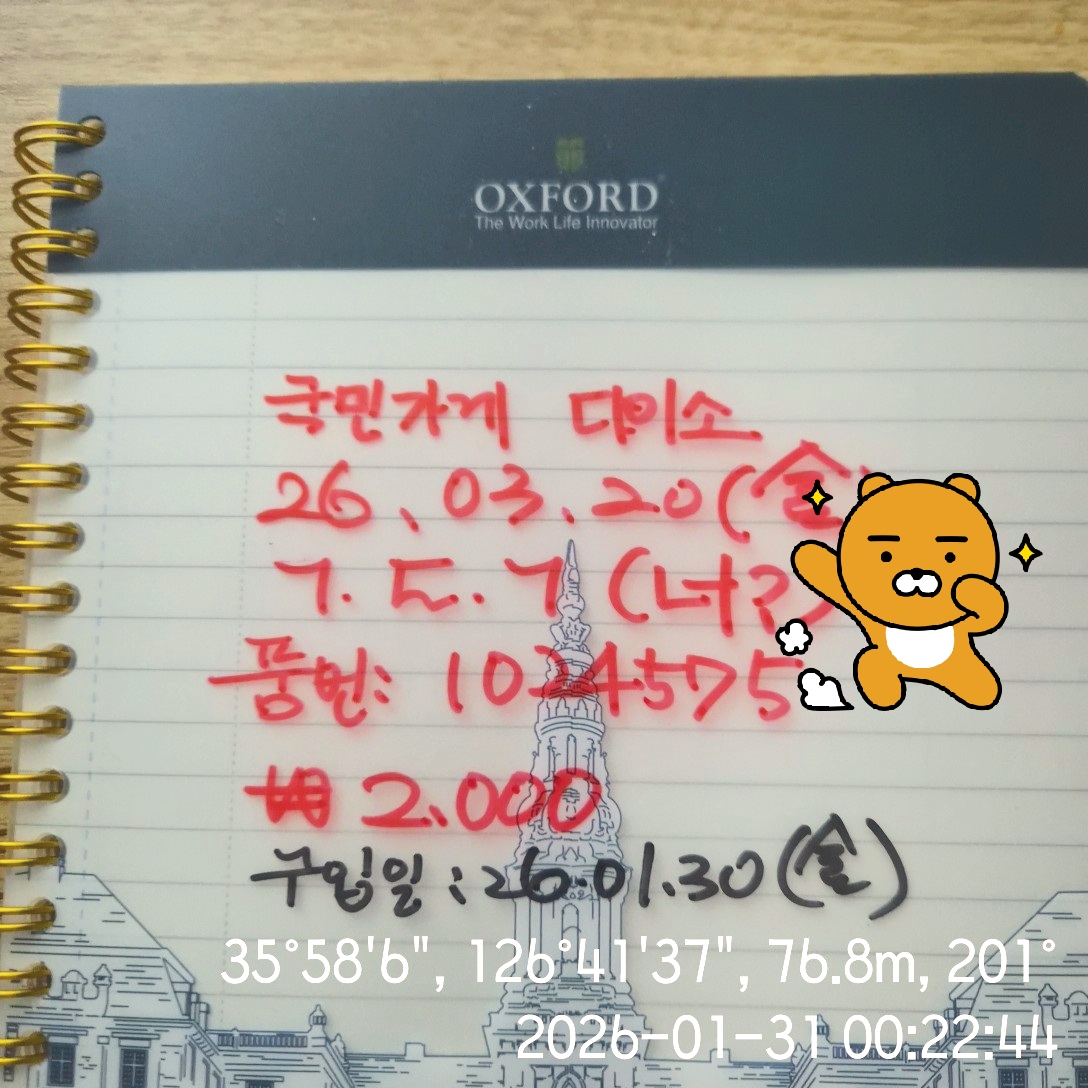 OXFORD
The Work Life Innovator
국민가게 다이소
26.03.20(金)
ㄱ.ㄷ.ㄱ (너?)
품번: 1024575
₩2.000
구입일:26.01.30(金)
35°58'6", 126°41'37", 76.8m, 201°
2026-01-31 00:22:44